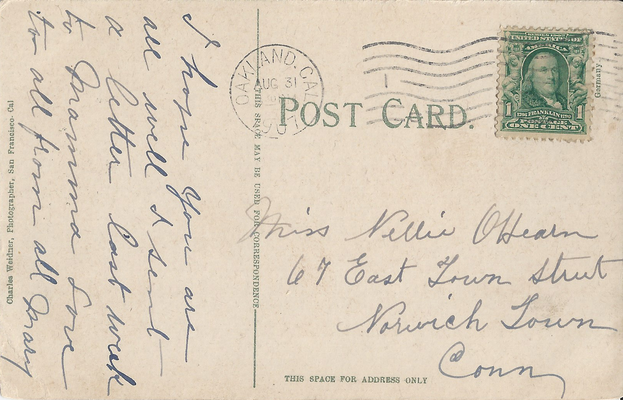 I hope you are
all well I sent
a letter last week
to Mamma Love
to all from all Mary
Charles Weidner, Photographer, San Francisco-Cal
THIS SPACE MAY BE USED FOR CORRESPONDENCE
OAKLAND, CAL.
AUG 31
POST CARD.
UNITED STATES OF
AMERICA
FRANKLIN
POSTAGE
1 ONE CENT 1
Germany
Miss Nellie OHearn
67 East Town Street
Norwich Town
Conn
THIS SPACE FOR ADDRESS ONLY